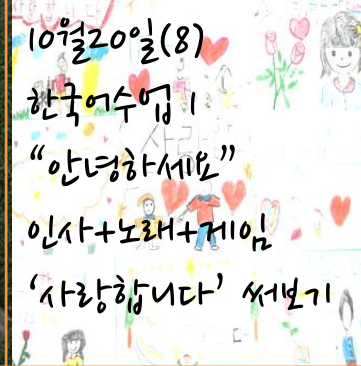 10월20일(8)
한국어수업 1
“안녕하세요”
인사+노래+게임
‘사랑합니다’ 써보기